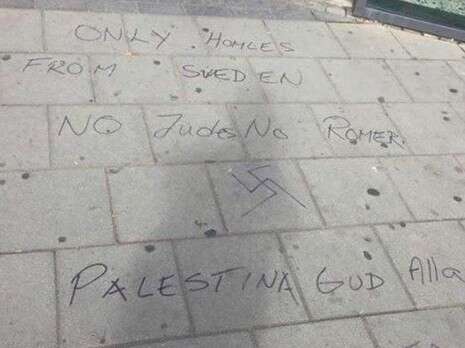 ONLY HOMLES
FROM SVEDEN
NO Judes No ROMER.
PALESTINA GUD Alla